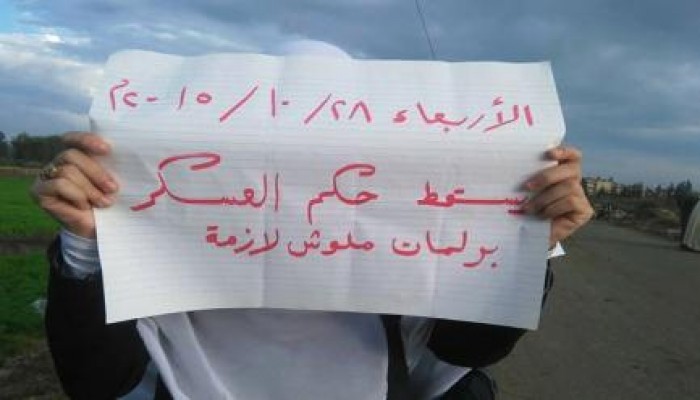 الأربعاء ٢٨/ ١٠/ ٢٠١٥م
يسقط حكم العسكر
برلمان ملوش لازمة